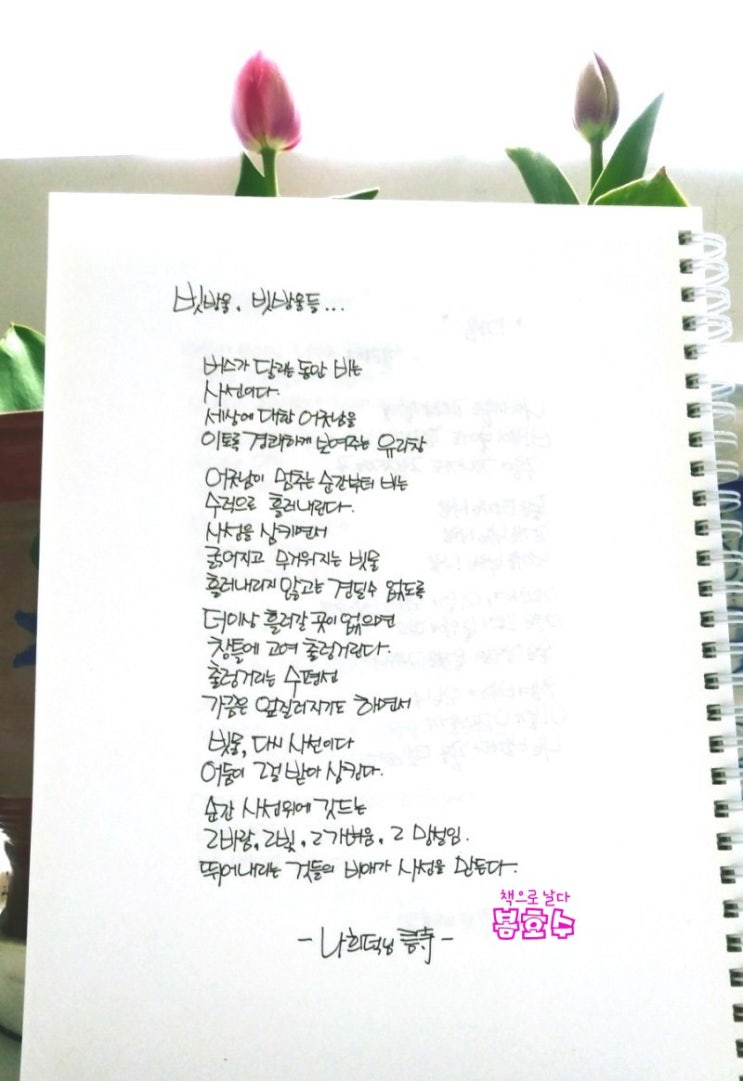 빗방울, 빗방울들...
버스가 달리는 동안 비는
사선이다.
세상에 대한 어긋남을
이토록 경쾌하게 보여주는 유리창
어긋남이 멈추는 순간부터 비는
수직으로 흘러내린다.
사선을 삼키면서
굵어지고 무거워지는 빗물
흘러내리지 않고는 견딜수 없도록
더이상 흘러갈 곳이 없으면
창틀에 고여 출렁거린다.
출렁거리는 수평선
가끔은 엎질러지기도 하면서
빗물, 다시 사선이다
어둠이 그걸 받아 삼킨다.
순간 사선위에 깃드는
그 바람, 그 빛, 그 가벼움, 그 망설임.
뛰어내리는 것들의 비애가 사선을 만든다.
책으로 날다
봉효수
- 나희덕님 詩 -